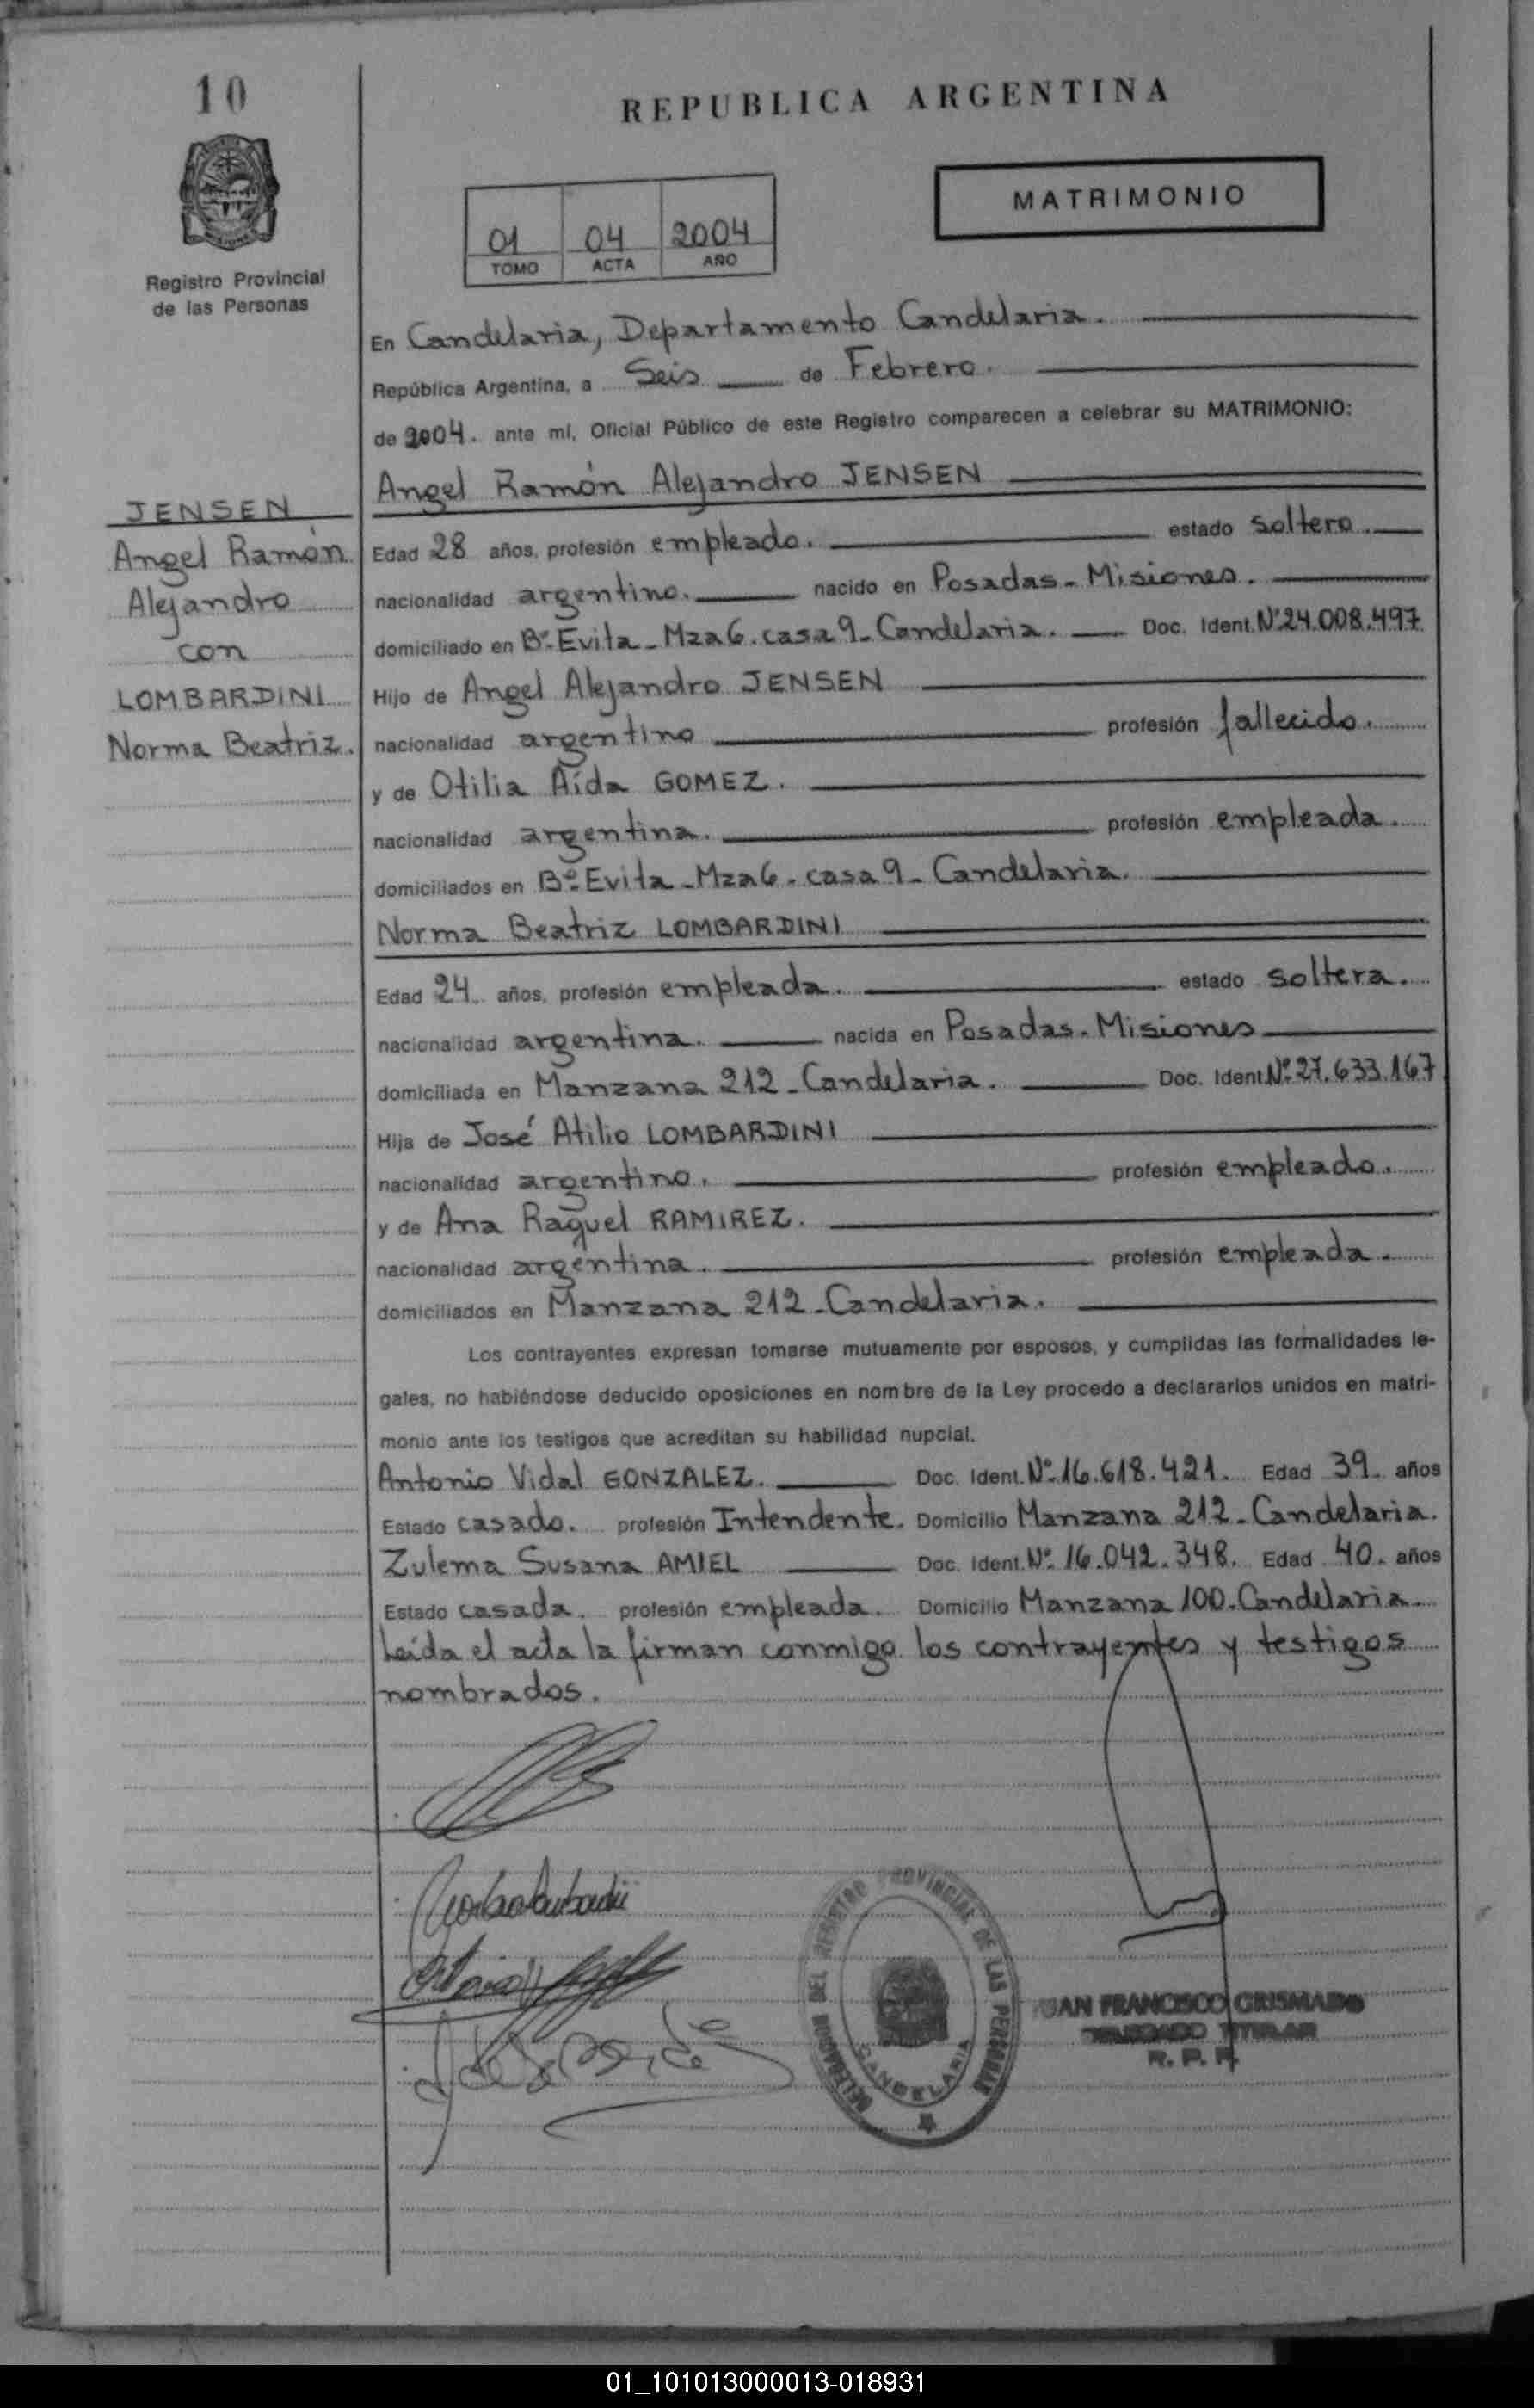 10
REPUBLICA ARGENTINA
MATRIMONIO
01 04 2004
TOMO ACTA AÑO
Registro Provincial
de las Personas
En Candelaria, Departamento Candelaria.
República Argentina, a Seis de Febrero.
de 2004. ante mí, Oficial Público de este Registro comparecen a celebrar su MATRIMONIO:
Angel Ramón Alejandro JENSEN
JENSEN
Angel Ramón
Alejandro
con
LOMBARDINI
Norma Beatriz.
Edad 28 años, profesión empleado. estado soltero.
nacionalidad argentino. nacido en Posadas - Misiones.
domiciliado en Bº Evita - Mza 6. casa 9 - Candelaria. Doc. Ident. Nº 24.008.497
Hijo de Angel Alejandro JENSEN
nacionalidad argentino profesión fallecido.
y de Otilia Aída GOMEZ.
nacionalidad argentina. profesión empleada.
domiciliados en Bº Evita - Mza 6 - casa 9 - Candelaria.
Norma Beatriz LOMBARDINI
Edad 24 años, profesión empleada. estado soltera.
nacionalidad argentina. nacida en Posadas - Misiones
domiciliada en Manzana 212 - Candelaria. Doc. Ident. Nº 27.633.167
Hija de José Atilio LOMBARDINI
nacionalidad argentino. profesión empleado.
y de Ana Raquel RAMIREZ.
nacionalidad argentina. profesión empleada.
domiciliados en Manzana 212 - Candelaria.
Los contrayentes expresan tomarse mutuamente por esposos, y cumplidas las formalidades le-
gales, no habiéndose deducido oposiciones en nombre de la Ley procedo a declararlos unidos en matri-
monio ante los testigos que acreditan su habilidad nupcial.
Antonio Vidal GONZALEZ. Doc. Ident. Nº 16.618.421. Edad 39. años
Estado casado. profesión Intendente. Domicilio Manzana 212 - Candelaria.
Zulema Susana AMIEL Doc. Ident. Nº 16.042.348. Edad 40. años
Estado casada. profesión empleada. Domicilio Manzana 100 - Candelaria.
Leída el acta la firman conmigo los contrayentes y testigos
nombrados.
DELEGACION DEL REGISTRO PROVINCIAL DE LAS PERSONAS
CANDELARIA
JUAN FRANCISCO CRISMADO
DELEGADO TITULAR
R. P. P.
01_101013000013-018931